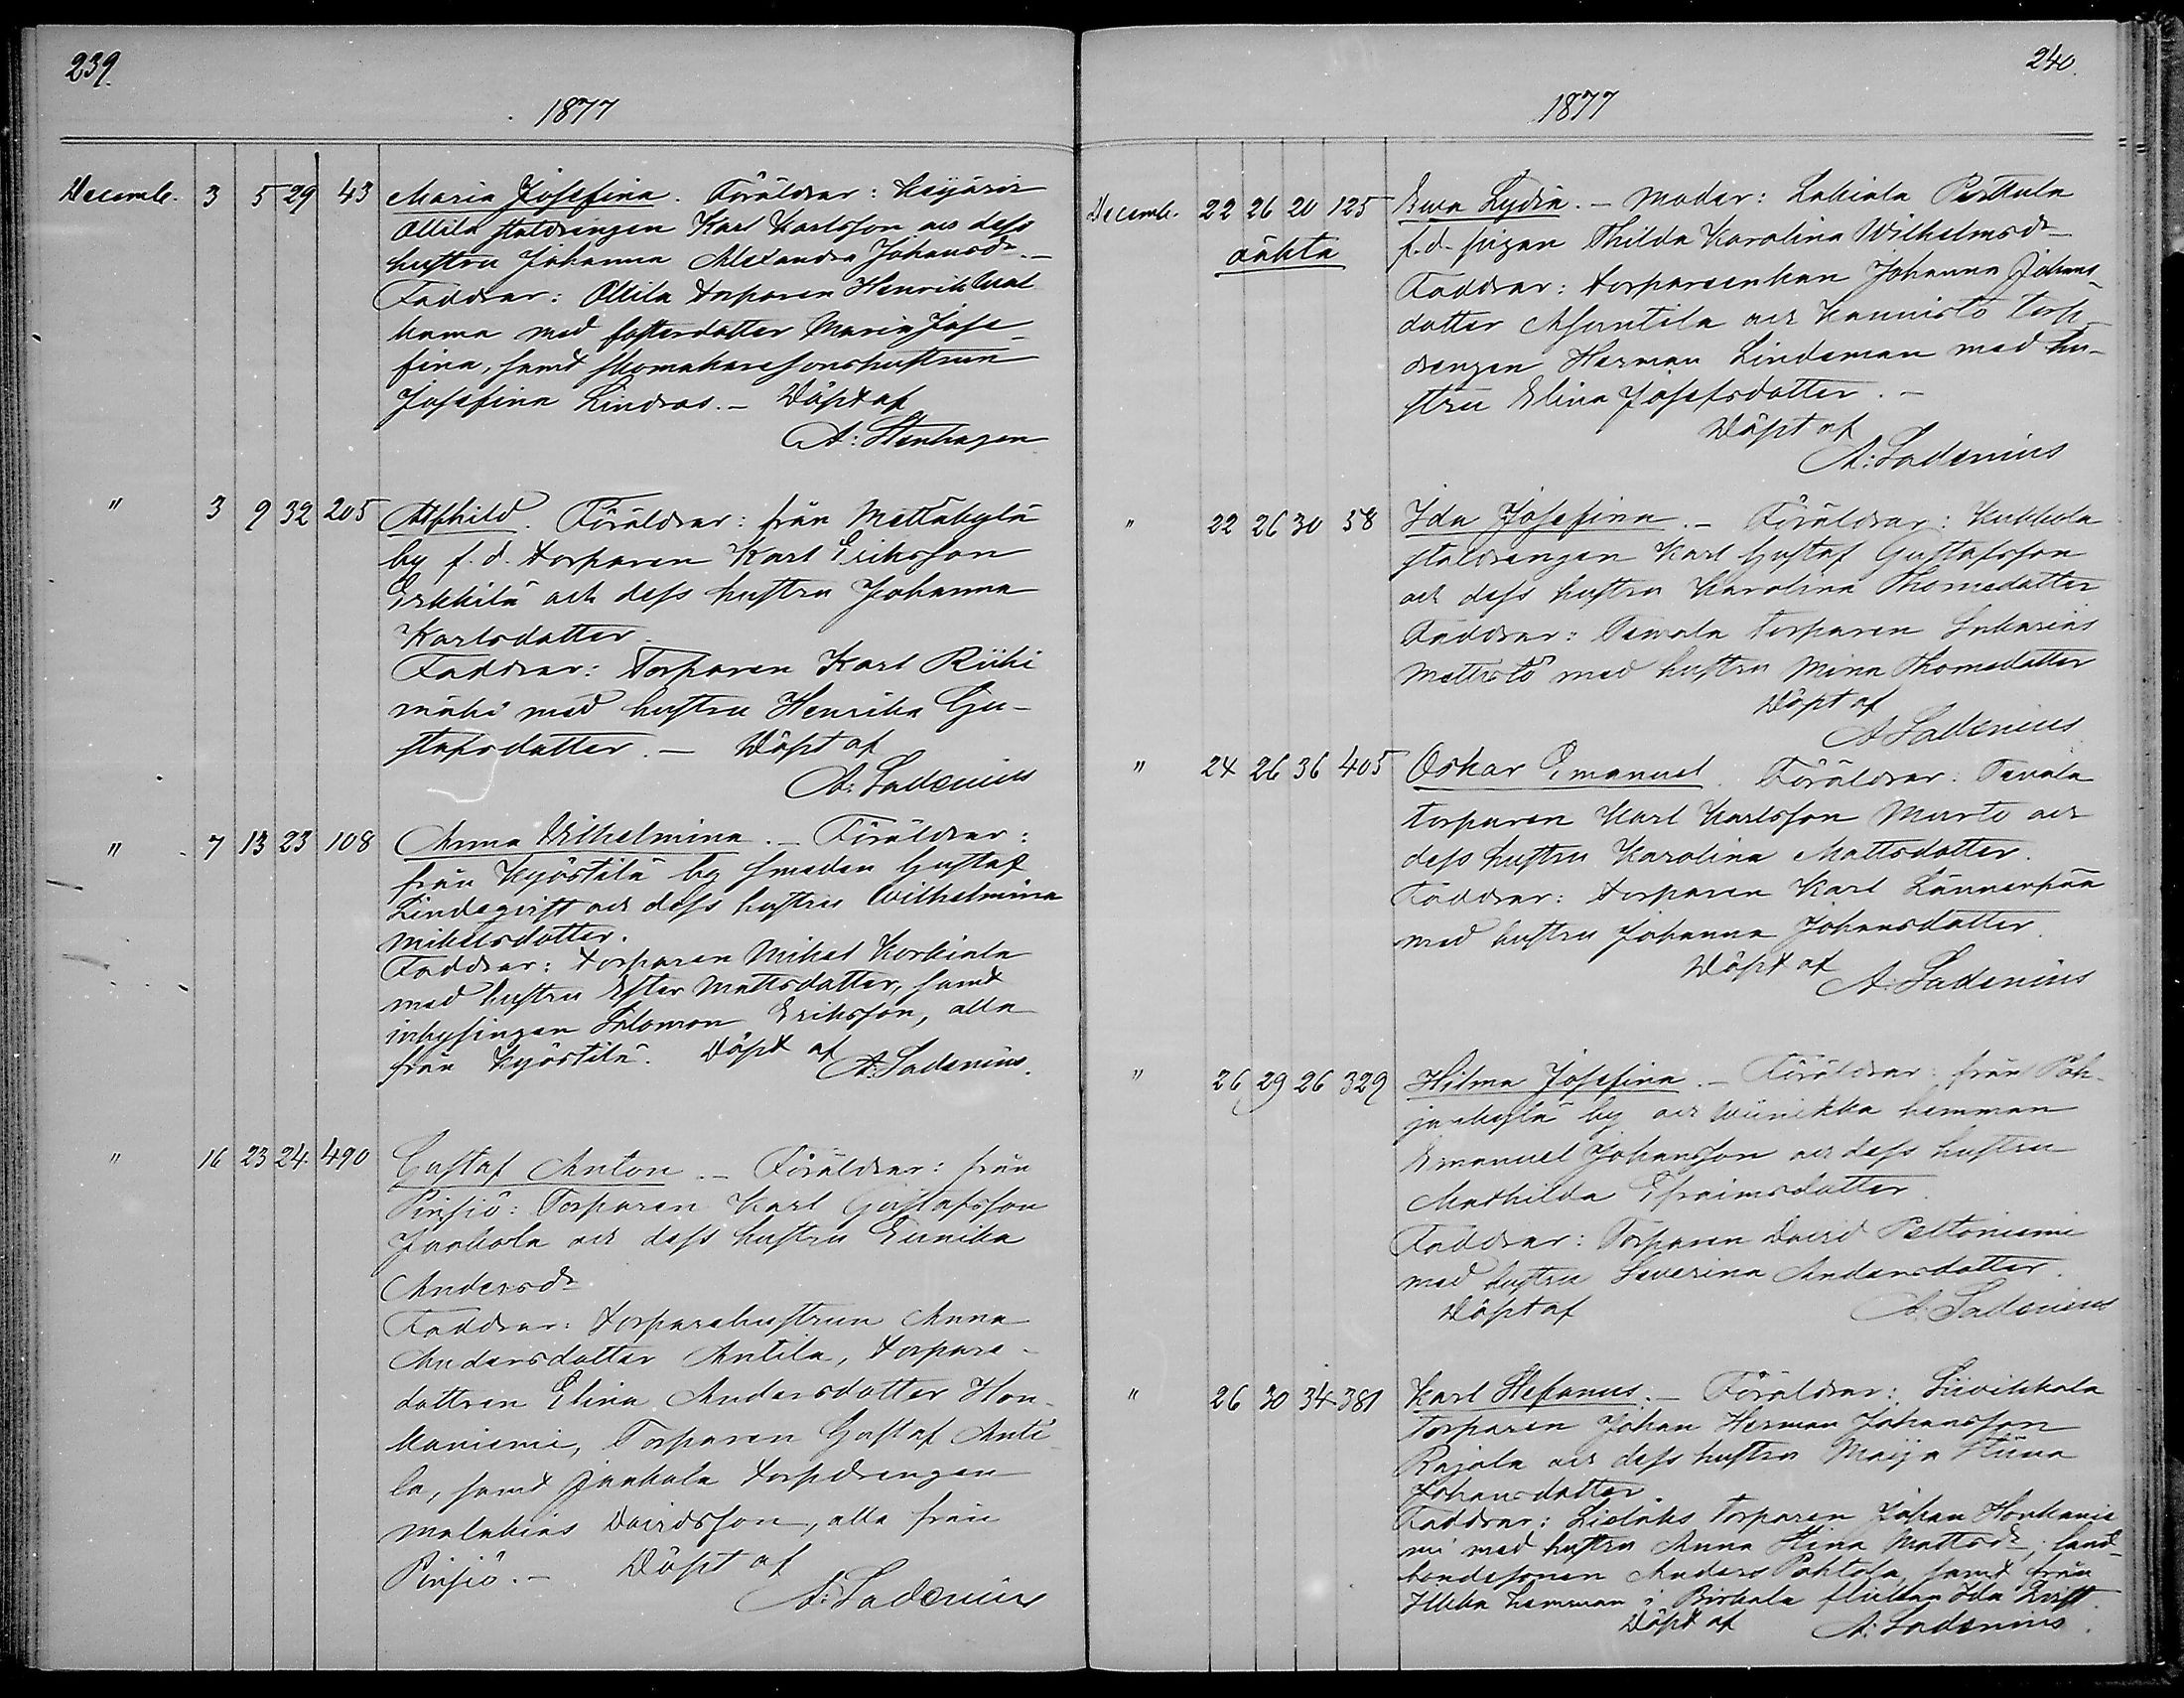 239.
1877
Decemb. 3 5 29 43 Maria Josefina. Föräldrar:
Ollila staldrengen Karl Karlsson och dess
hustru Johanna Alexandra Johansdr. –
Faddrar: Ollila torparen Henrik Wal
kama med fosterdotter Maria Jose-
fina, samt skomakaresonshustrun
Josefina Lindros. – Döpt af
A: Stenhagen
" 3 9 32 205 Alfhild. Föräldrar: från Mettäkylä
by f. d. torparen Karl Eriksson
Erkkilä och dess hustru Johanna
Karlsdotter.
Faddrar: Torparen Karl Riihi
mäki med hustru Henrika Gu-
stafsdotter. – Döpt af
A: Ladenius
" 7 13 23 108 Anna Wilhelmina. – Föräldrar:
från Kyöstilä by smeden Gustaf
Lindeqvist och dess hustru Wilhelmina
Mikelsdotter.
Faddrar: torparen Mikel Korkiala
med hustru Ester Mattsdotter, samt
inhysingen Salomon Eriksson, alla
från Kyöstilä. Döpt af A: Ladenius.
" 16 23 24. 490 Gustaf Anton. – Föräldrar: från
Pinsiö: Torparen Karl Gustafsson
Jaakola och dess hustru Eunika
Andersdr
Faddrar: torparehustrun Anna
Andersdotter Antila, torpare-
dottren Elina Andersdotter Hon-
kaniemi, Torparen Gustaf Anti
la, samt Jaakola torpdrengen
Malakias Davidsson, alla från
Pinsiö. – Döpt af
A: Ladenius
240.
1877
Decemb. 22 26 20 125 Ewa Lydia. – Moder: Lakiala Perttula
oäkta f.d. pigan Thilda Karolina Wilhelmsdr
Faddrar: torpareenkan Johanna Johans-
dotter Mäntilä och Kannisto torp
drengen Herman Lindeman med hu-
stru Elina Josefsdotter. –
Döpt af
A: Ladenius
" 22 26 30 58 Ida Josefina. – Föräldrar: Kukkola
staldrengen Karl Gustaf Gustafsson
och dess hustru Karolina Thomedotter
Faddrar: Temola torparen Sakarias
Mettistö med hustru Mina Thomedotter
Döpt af
A Ladenius
" 24 26 36 405 Oskar Emanuel. Föräldrar: Tevala
torparen Karl Karlsson Murto och
dess hustru Karolina Mattsdotter.
Faddrar: torparen Karl Lännenpää
med hustru Johanna Johansdotter.
Döpt af A: Ladenius
" 26 29 26 329 Hilma Josefina. – Föräldrar: från Poh-
jankylä by och Wiinikka hemman
Emanuel Johansson och dess hustru
Mathilda Efraimsdotter.
Faddrar: Torparen David Peltoniemi
med hustru Severina Andersdotter.
Döpt af A. Ladenius
" 26 30 34 381 Karl Stefanus. – Föräldrar: Siivikkala
torparen Johan Herman Johansson
Rajala och dess hustru Maija Stiina
Johansdotter.
Faddrar: torparen Johan Honkanie
mi med hustru Anna Stina Mattsdr, land-
bondesonen Anders Pohtola, samt från
hemman i Birkala flickan Ida Kvist.
Döpt af A: Ladenius.